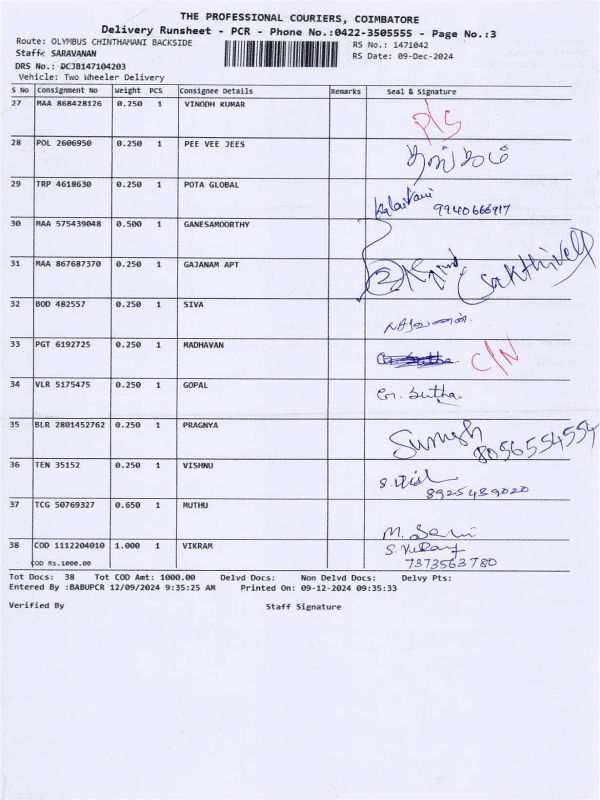 THE PROFESSIONAL COURIERS, COIMBATORE
Delivery Runsheet - PCR - Phone No.:0422-3505555 - Page No.:3
Route: OLYMBUS CHINTHAMANI BACKSIDE RS No.: 1471042
Staff: SARAVANAN RS Date: 09-Dec-2024
DRS No.: DCJ8147104203
Vehicle: Two Wheeler Delivery
S No Consignment No Weight PCS Consignee Details Remarks Seal & Signature
27 MAA 868428126 0.250 1 VINODH KUMAR
28 POL 2606950 0.250 1 PEE VEE JEES
29 TRP 4618630 0.250 1 POTA GLOBAL 9940666917
30 MAA 575439048 0.500 1 GANESAMOORTHY
31 MAA 867687370 0.250 1 GAJANAM APT Sakthivell
32 BOD 482557 0.250 1 SIVA
33 PGT 6192725 0.250 1 MADHAVAN C/N
34 VLR 5175475 0.250 1 GOPAL G. Sutha
35 BLR 2801452762 0.250 1 PRAGNYA 8056554554
36 TEN 35152 0.250 1 VISHNU 8925489020
37 TCG 50769327 0.650 1 MUTHU
38 COD 1112204010 1.000 1 VIKRAM
COD Rs.1000.00 7373563780
Tot Docs: 38 Tot COD Amt: 1000.00 Delvd Docs: Non Delvd Docs: Delvy Pts:
Entered By :BABUPCR 12/09/2024 9:35:25 AM Printed On: 09-12-2024 09:35:33
Verified By Staff Signature